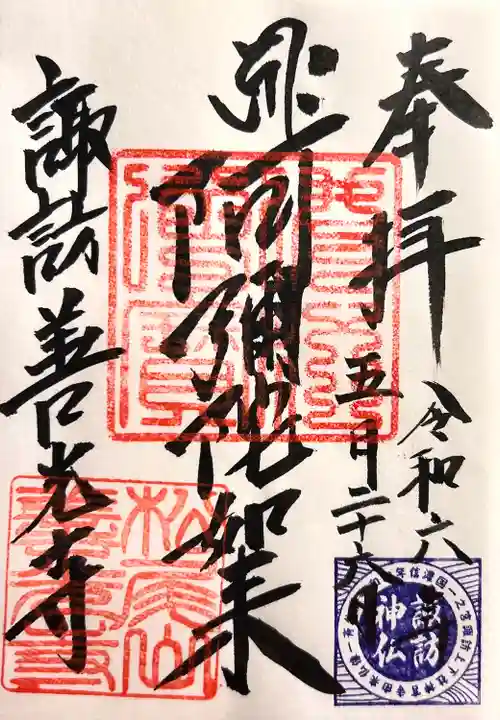 奉拝
令和六年
五月二十六日
阿彌陀如来
諏訪善光寺
松尾山
善光寺
諏訪
神仏